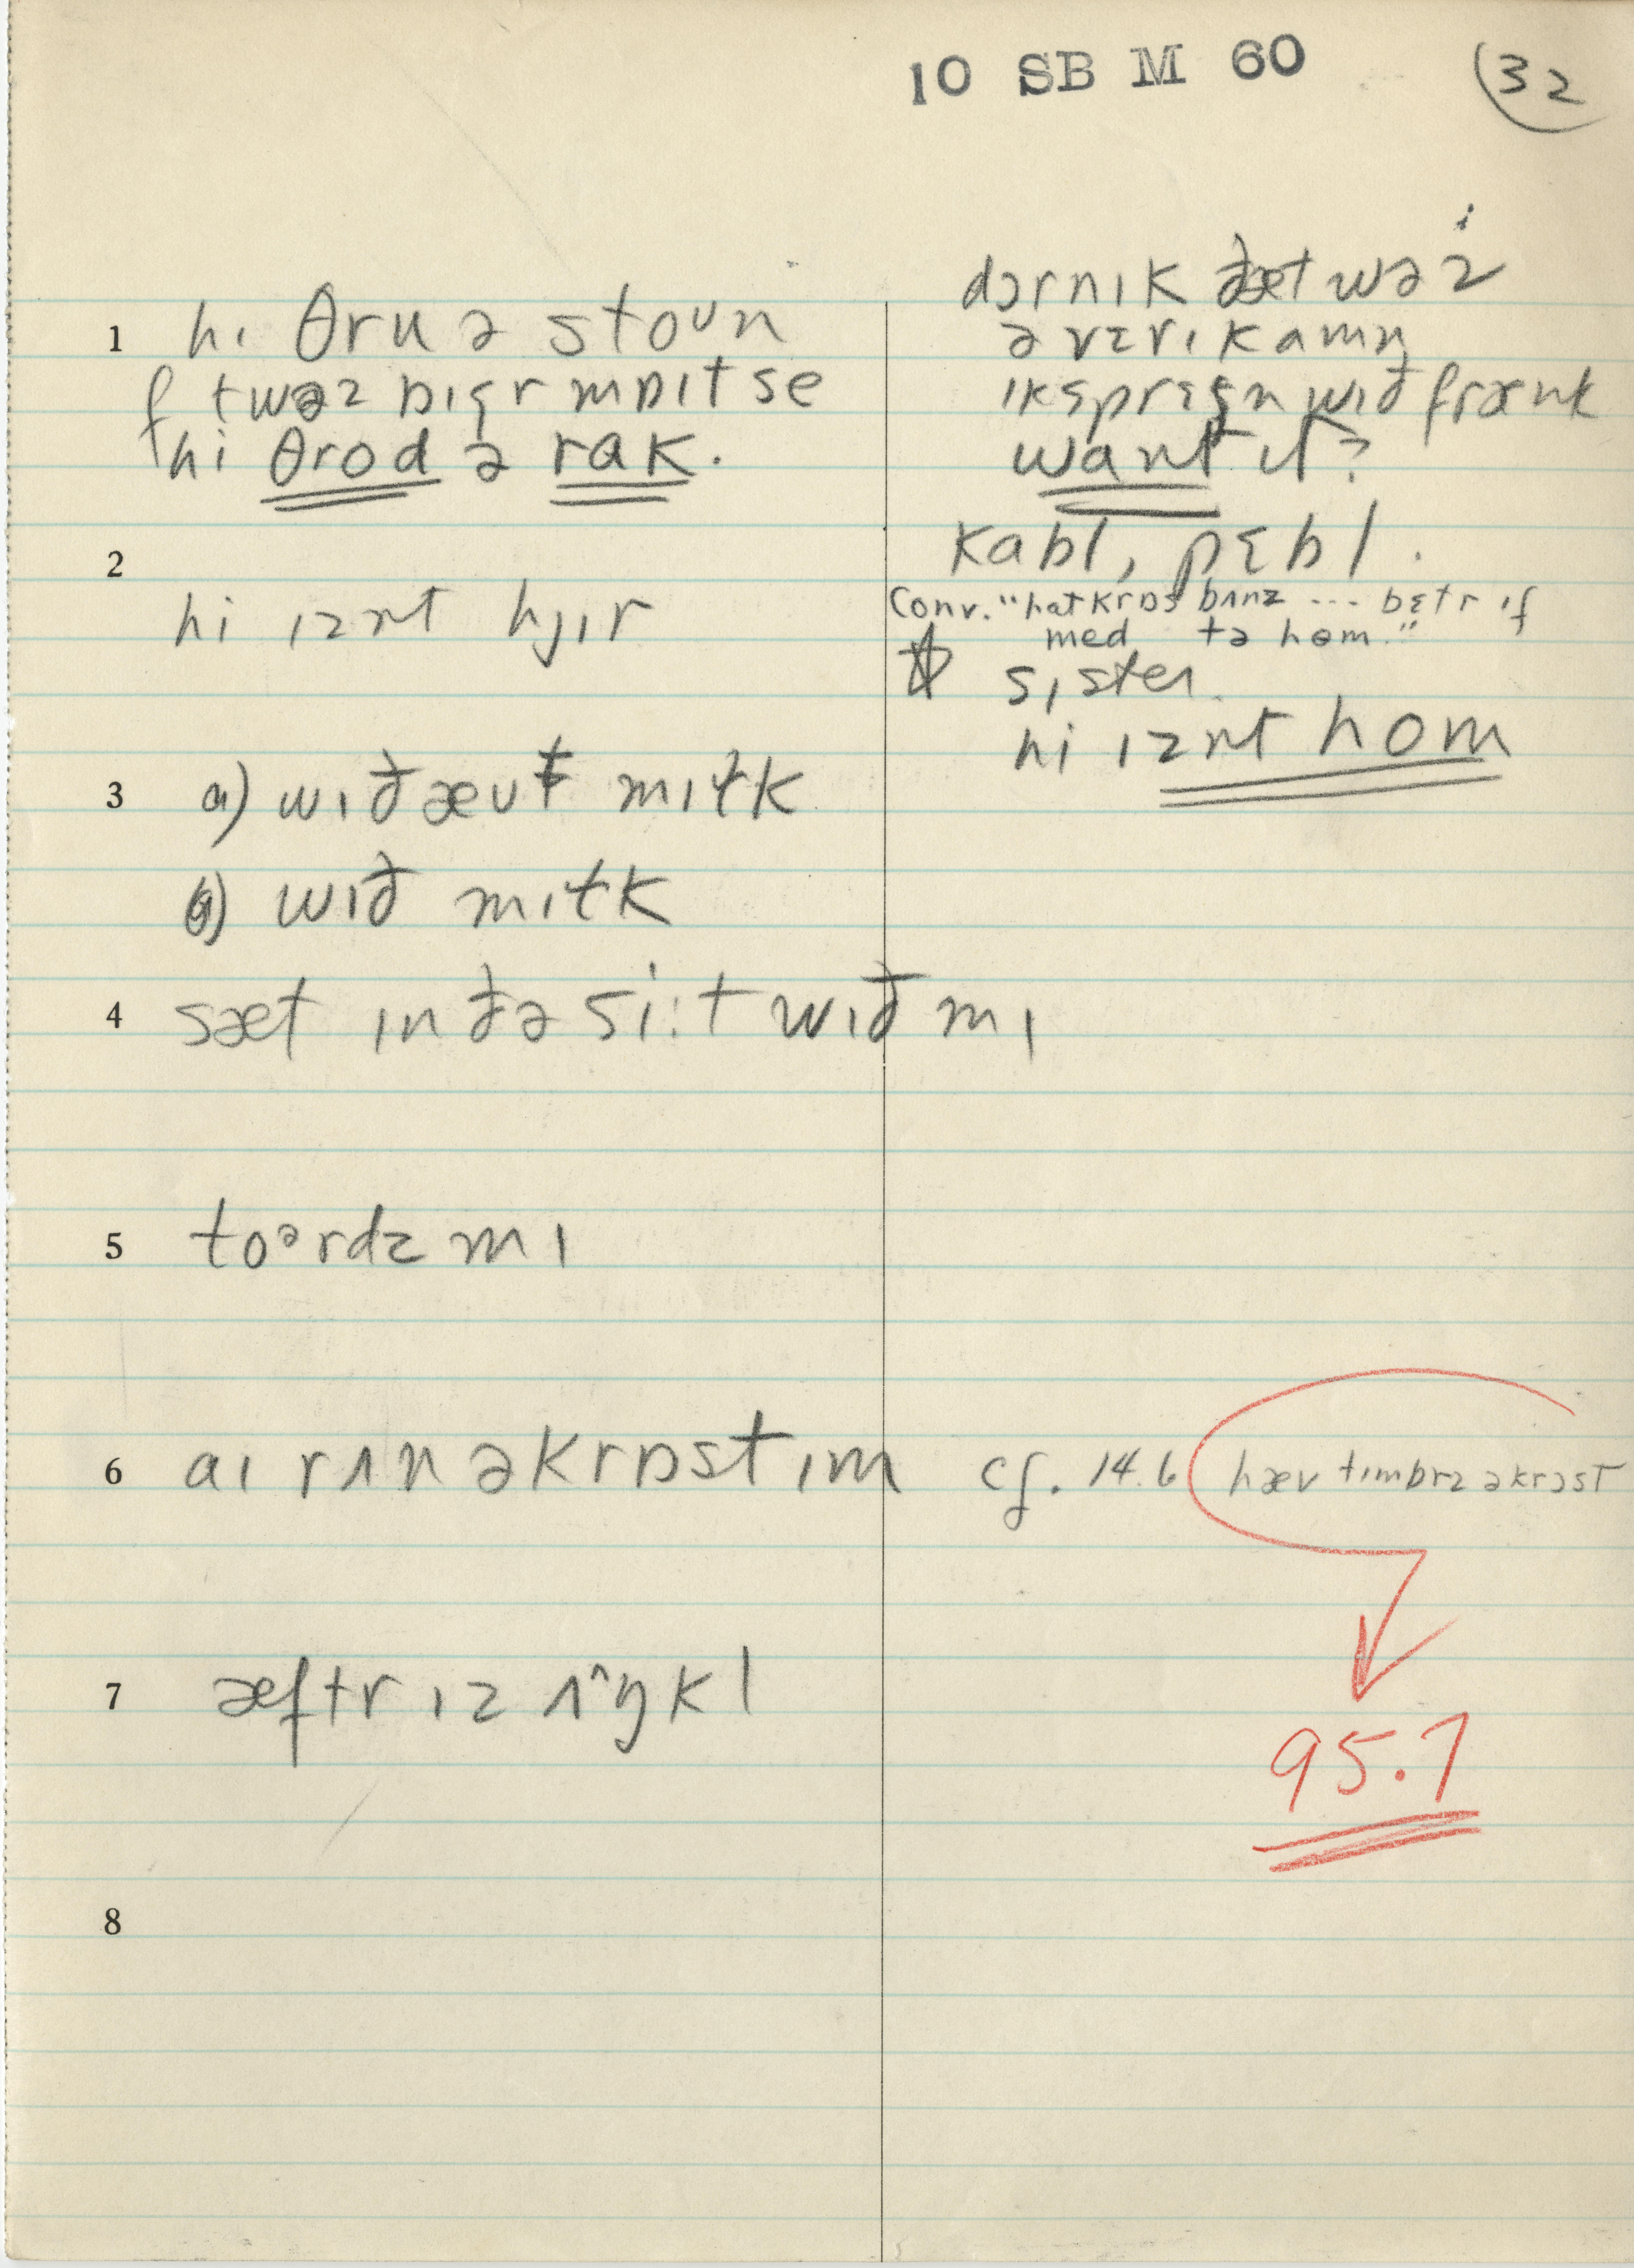 10 SB M 60
32
1 hi θru ə stoᴜn
f twəz bɪgr mɒɪt se
hi θrod ə rak.
dɔrnɪk ðæt wəz
ə vɛrɪ kamn̩
ɪksprɛʃn wɪð frænk
want ɪt?
2
kabl, pɛbl.
hi ɪznt hjɪr
Conv. "hatkrɒs bʌnz --- bɛtr if
med tə hom."
sister.
hi ɪznt hom
3 a) wɪðæʊt mɪɫk
b) wɪð mɪɫk
4 sæt ɪn ðə si:t wɪð mɪ
5 toərdz mɪ
6 aɪ rʌn əkrɒst ɪm cf. 14.6 hæv tɪmbrz əkrɔst
7 æftr ɪz ʌ^ŋkl
95.7
8